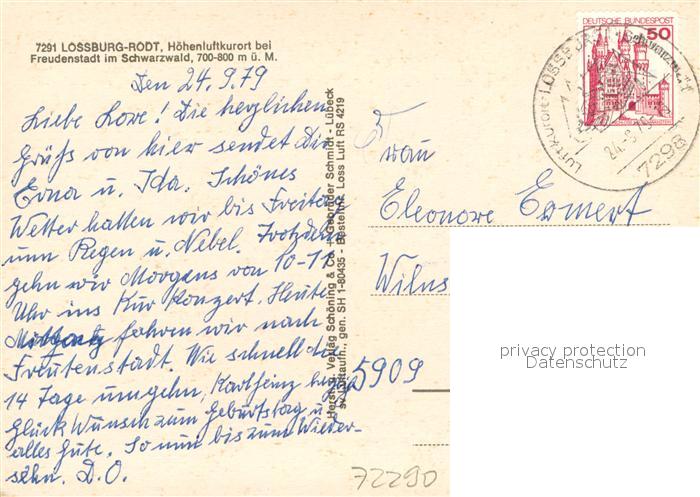 7291 LOSSBURG-RODT, Höhenluftkurort bei
Freudenstadt im Schwarzwald, 700-800 m ü. M.
Den 24.9.79
Liebe Lore! Die herzlichen
Grüß von hier sendet Dir
Erna u. Ida. Schönes
Wetter hatten wir bis Freitag
nun Regen u. Nebel. Trotzdem
gehn wir Morgens von 10-11
Uhr ins Kur Konzert. Heute
Mittag fahren wir nach
Freutenstadt. Wie schnell die
14 Tage umgehn, Karlheinz
Glück Wunsch zum Geburtstag u.
alles Gute. So nun bis zum Wieder-
sehn. D.O.
Schöning & Co + Gebrüder Schmidt - Lübeck
gen. SH 1-80435 - Bestellnr. Loss Luft RS 4219
DEUTSCHE BUNDESPOST
50
LUFTKURORT
Schwarzwald
7298
Frau
Eleonore Ermert
Wilns
5909
privacy protection
Datenschutz
72290